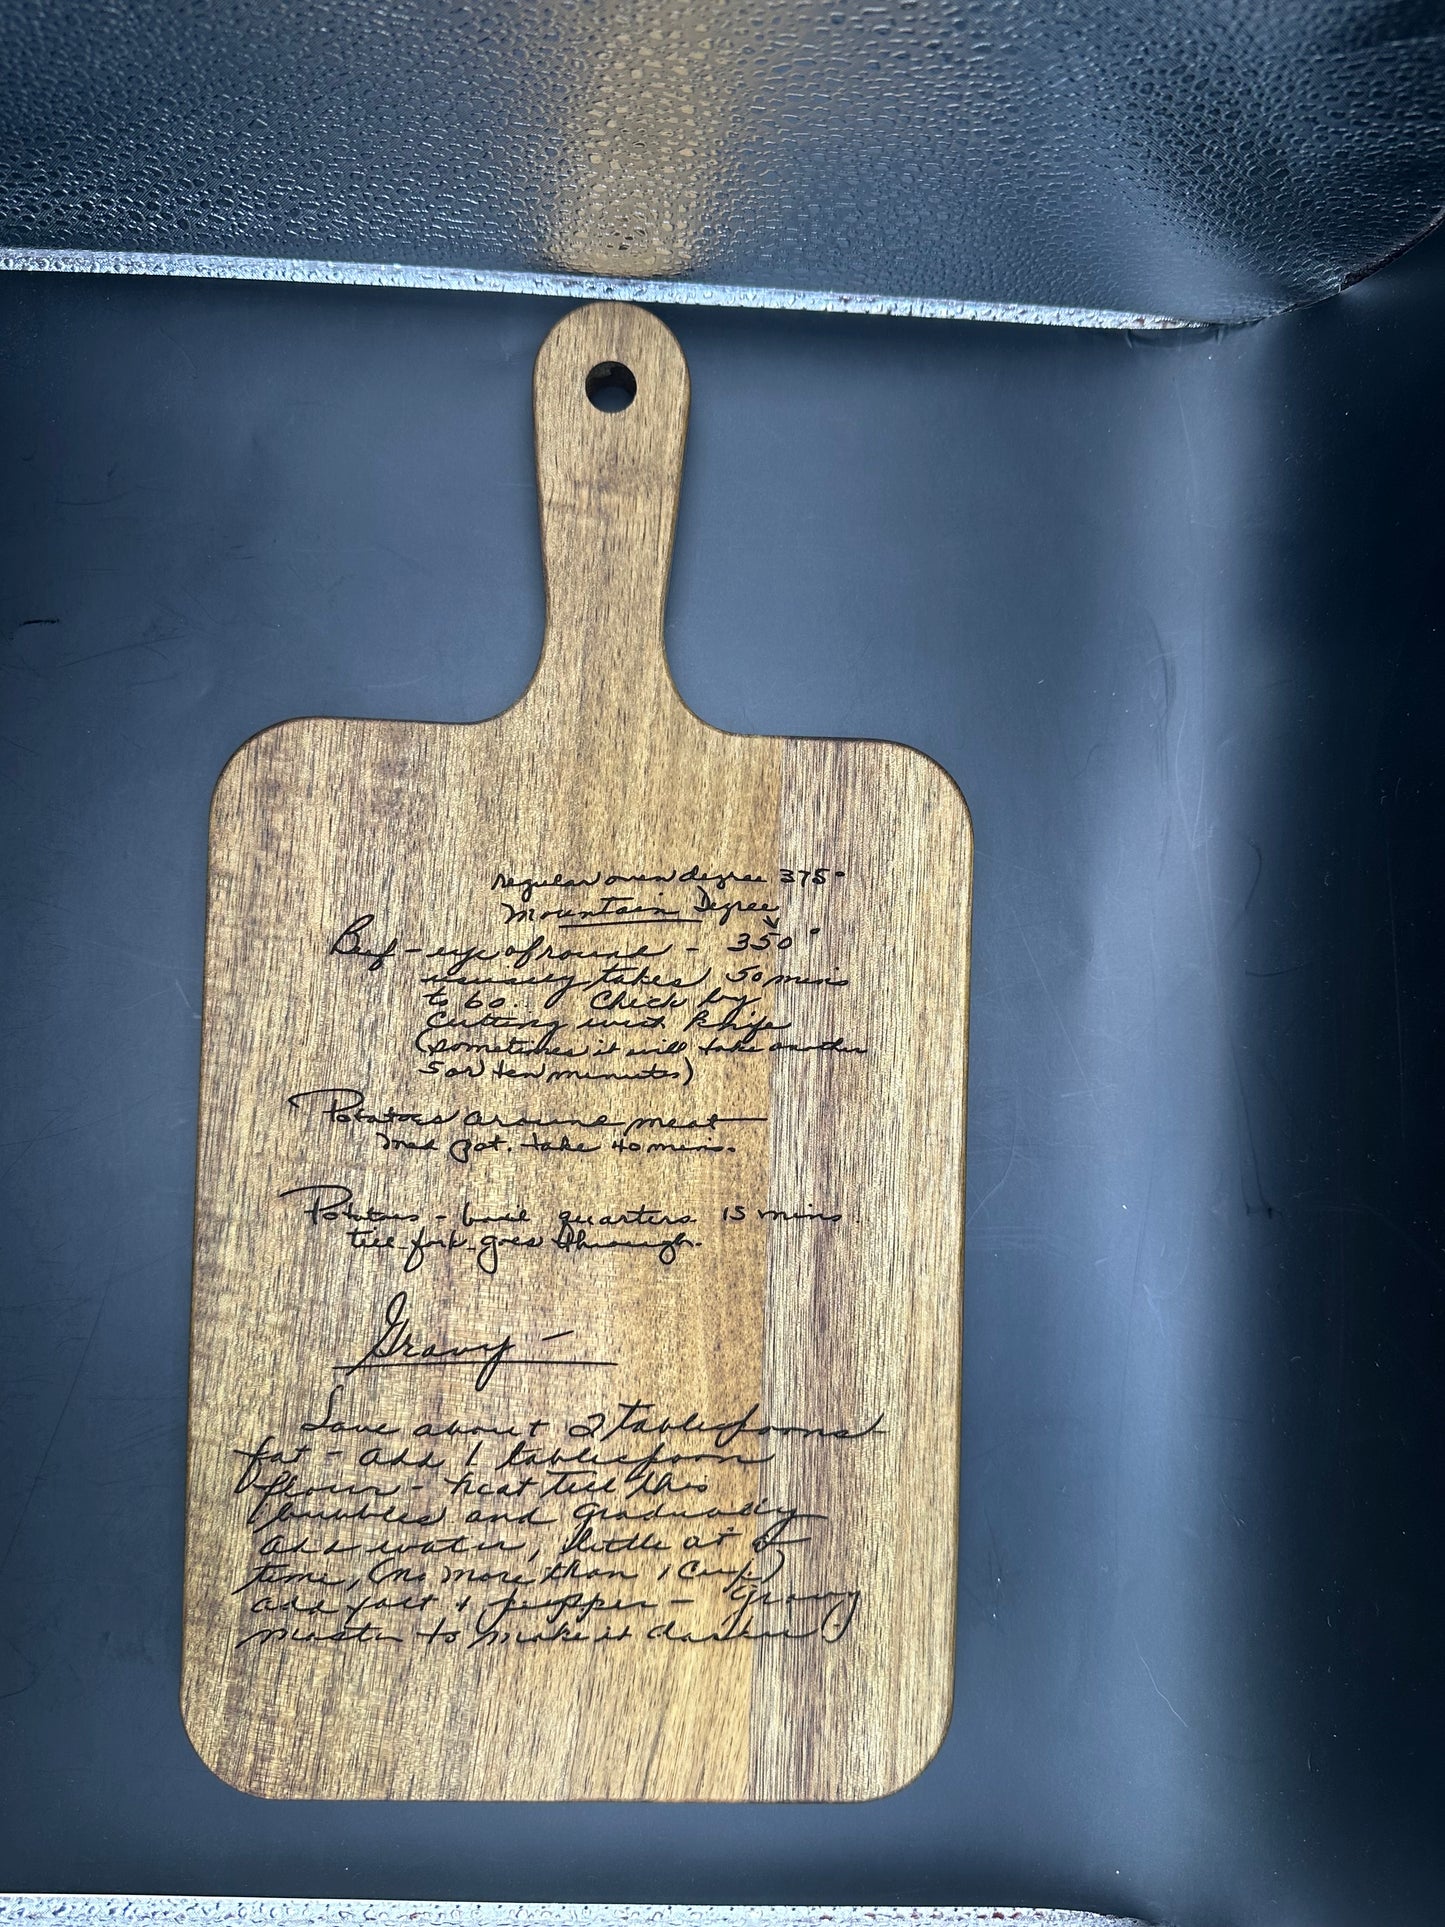 regular oven degree 375°
Mountain Degree
Beef - eye of round - 350°
usually takes 50 mins
to 60... Check by
Cutting with knife
(sometimes it will take another
5 or ten minutes)
Potatoes around meat
med pot. take 40 mins.
Potatoes - boil quarters 15 mins.
till fork goes through.
Gravy -
Save about 2 Tablespoons
fat - add 1 tablespoon
flour - heat till this
bubbles and gradually
add water, little at a
time, (no more than 1 Cup)
add salt + pepper - Gravy
master to make it darker